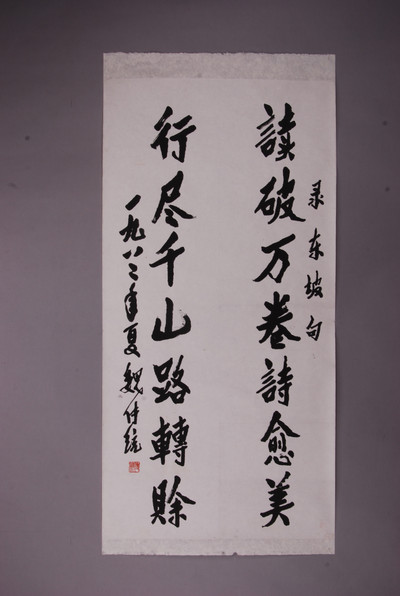 录东坡句
讀破万卷詩愈美
行尽千山路轉賒
一九八二年夏 魏传统